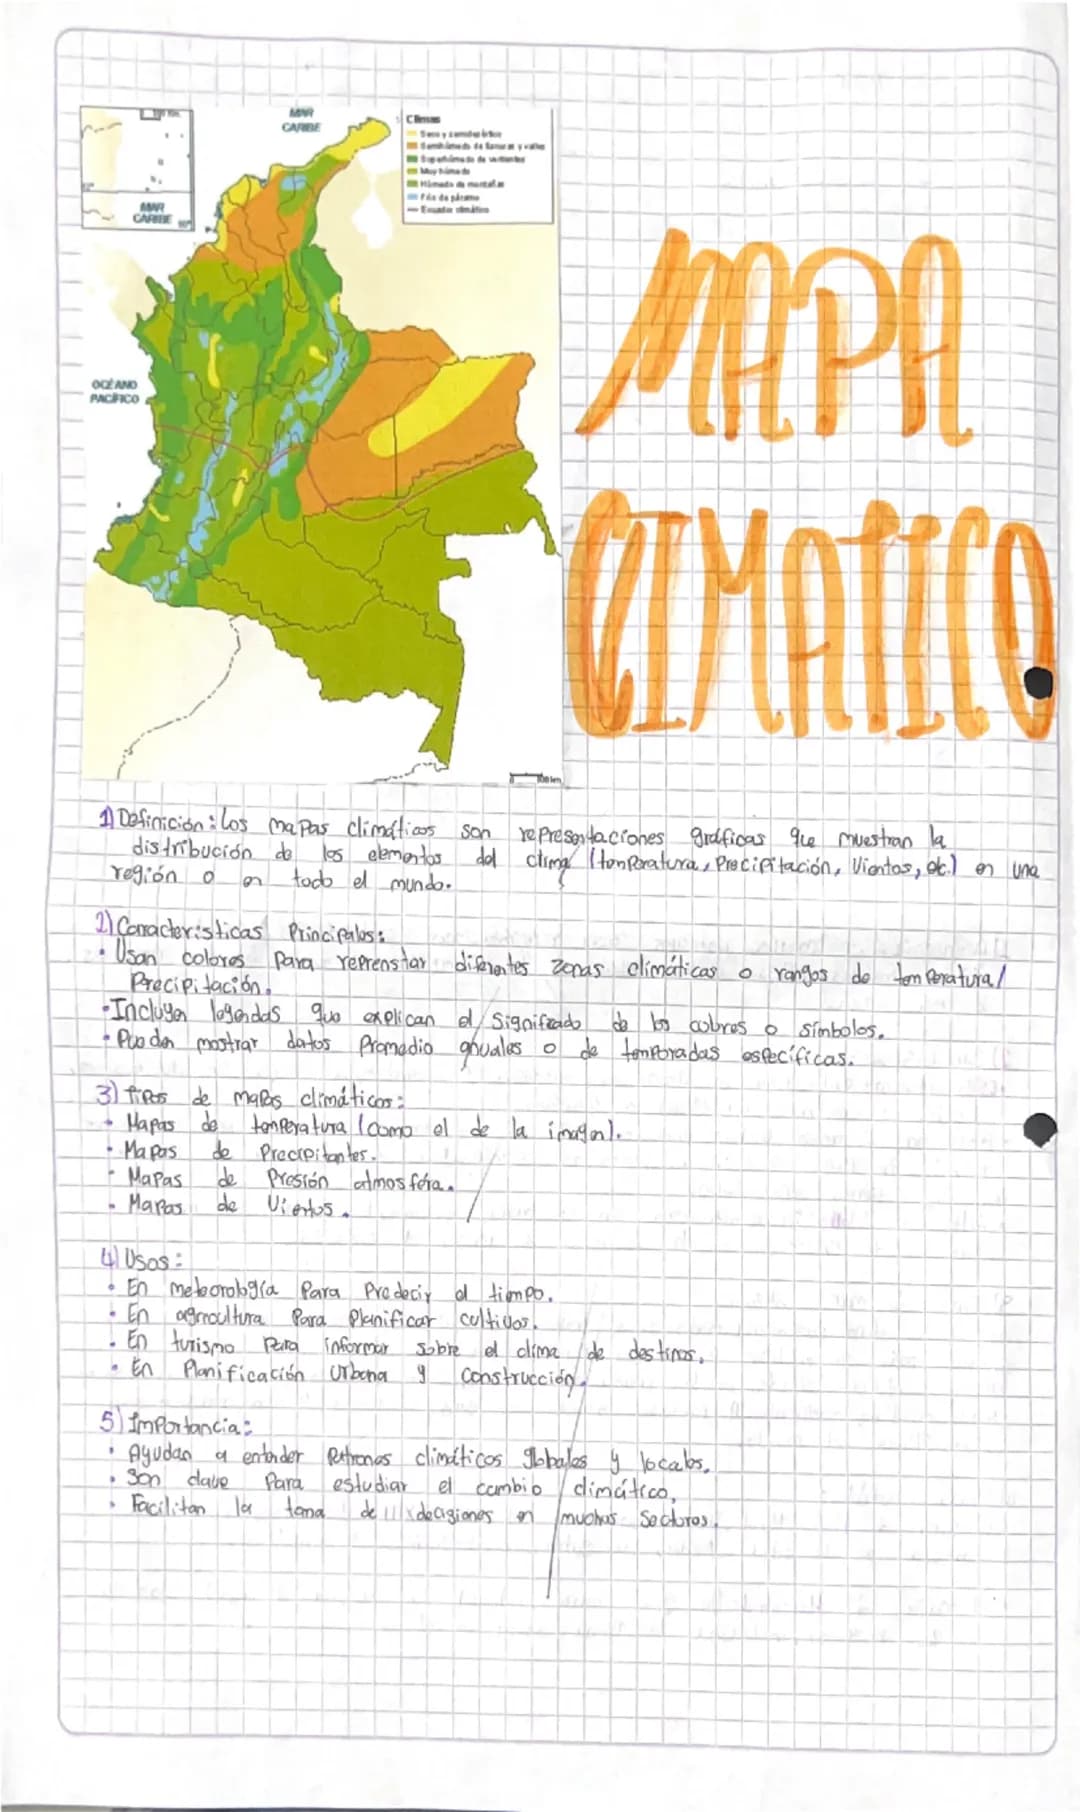 MAR
CARIBE
Climas
Seco y semidesértico
Semihúmedo de llanuras y valles
Superhúmedo de vertientes
Muy húmedo
Húmedo de montañas
Frío de páramo
Ecuador climático
MAR
CARIBE
MAPA
OCÉANO
PACÍFICO
CLIMATICO
100 km
1) Definición: Los mapas climáticos son representaciones gráficas que muestran la
distribución de los elementos del clima (temperatura, Precipitación, Vientos, etc.) en una
región o en todo el mundo.
2) Características Principales:
• Usan colores para reprenstar diferentes zonas climáticas o rangos de temperatura/
Precipitación.
• Incluyen leyendas que explican el significado de los colores o símbolos.
• Pueden mostrar datos Promedio anuales o de temporadas específicas.
3) Tipos de mapas climáticos:
• Mapas de temperatura (como el de la imagen).
• Mapas de Precipitantes.
• Mapas de Presión atmosféra.
• Mapas de Vientos.
4) Usos:
• En meteorología Para Predecir el tiempo.
• En agricultura Para Planificar cultivos.
• En turismo Para informar sobre el clima de destinos.
• En Planificación Urbana y construcción.
5) Importancia:
• Ayudan a entender Patrones climáticos globales y locales.
• Son clave Para estudiar el cambio climático,
• Facilitan la toma de decisiones en muchos sectores.